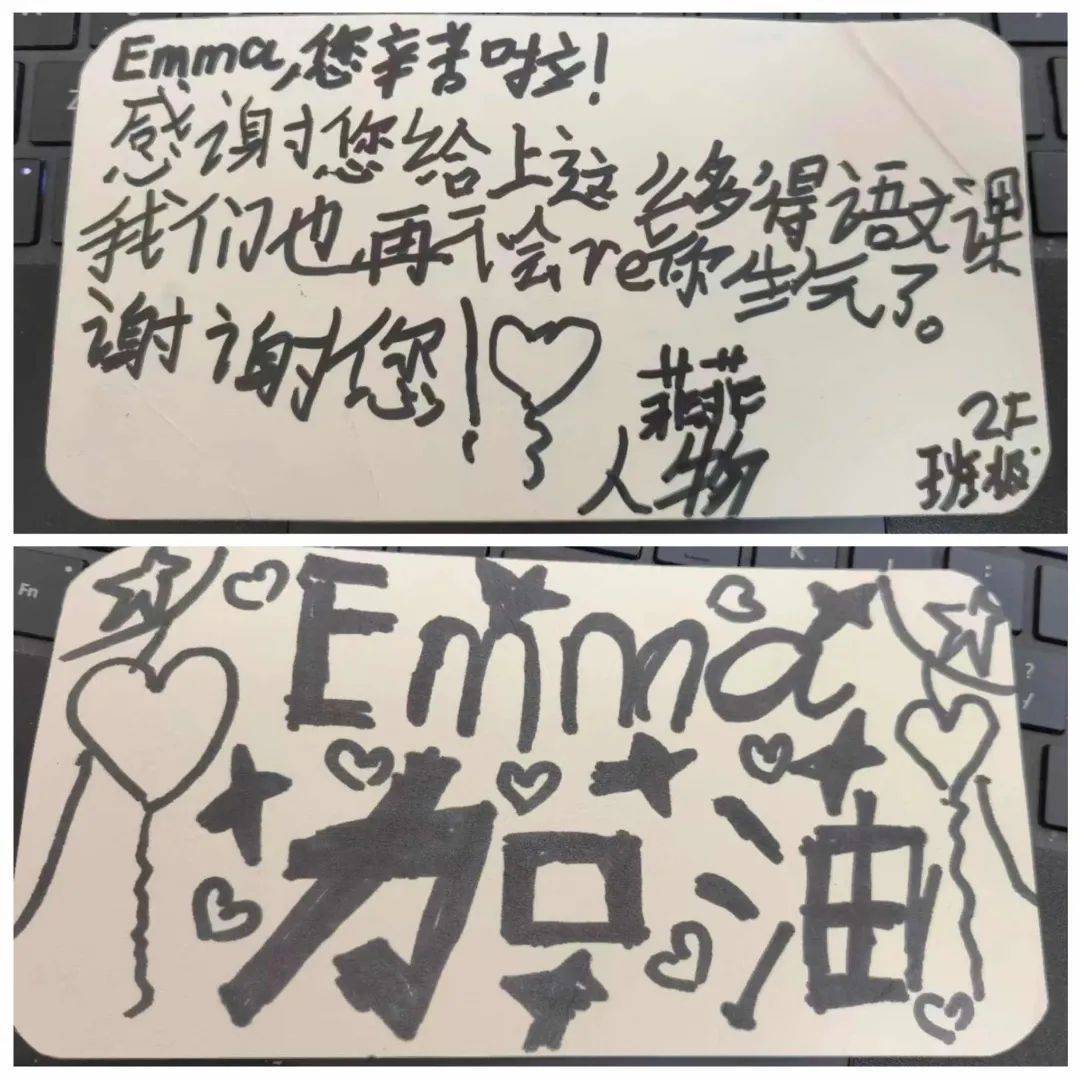 Emma,您辛苦啦!
感谢您给上这么多得语文课
我们也再不会re你生气了。
谢谢您!
菲菲
人物
2F
班级
Fn
K
?
/
Emma
加油